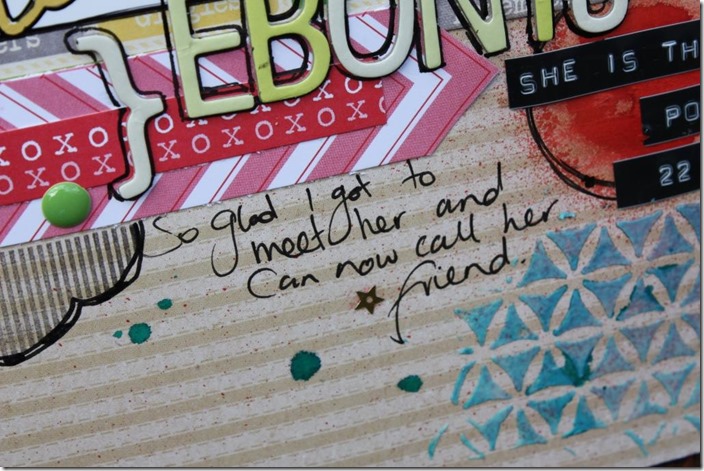 } EBONI
SHE IS TH
PO
22
XOXO XOXOXO
XOXO XOXOX
So glad I got to
meet her and
Can now call her
friend.